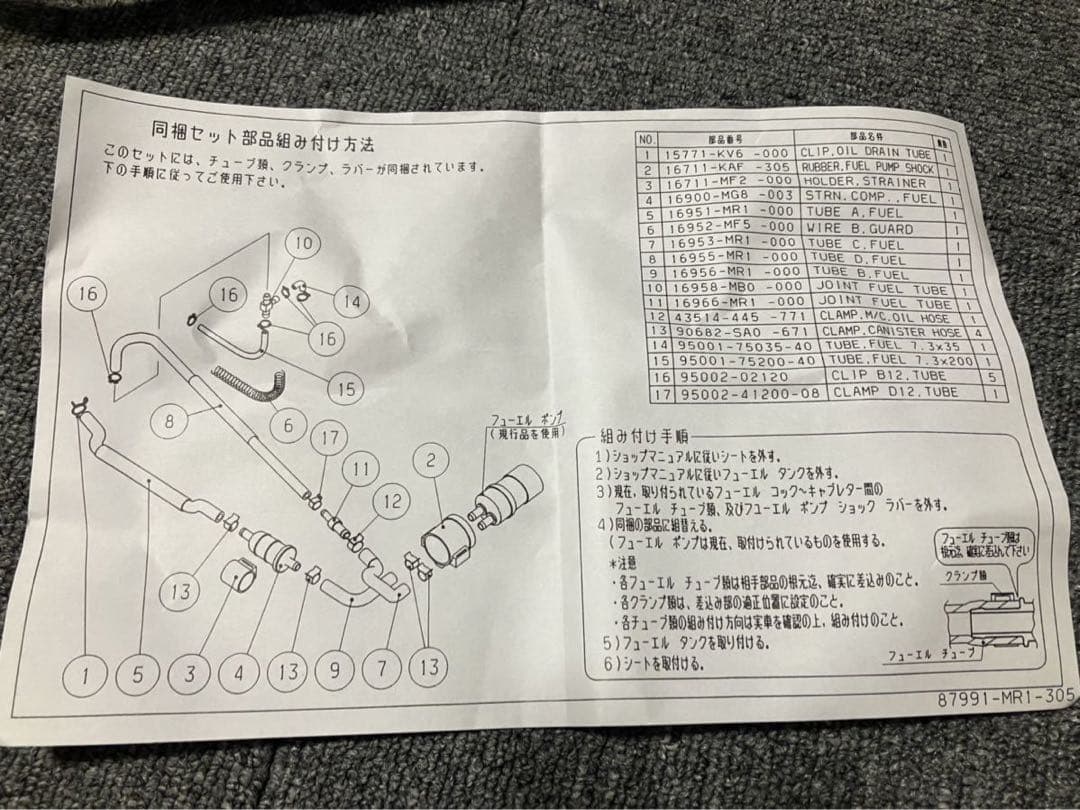 同梱セット部品組み付け方法
このセットには、チューブ類、クランプ、ラバーが同梱されています。
下の手順に従ってご使用下さい。
10
16
16
14
16
15
8
6
17
11
12
2
フューエル ポンプ
(現行品を使用)
13
1
5
3
4
13
9
7
13
NO. 部品番号 部品名称
1 15771-KV6 -000 CLIP,OIL DRAIN TUBE 1
2 16711-KAF -305 RUBBER,FUEL PUMP SHOCK 1
3 16711-MF2 -000 HOLDER,STRAINER 1
4 16900-MG8 -003 STRN.COMP.,FUEL 1
5 16951-MR1 -000 TUBE A,FUEL 1
6 16952-MF5 -000 WIRE B,GUARD 1
7 16953-MR1 -000 TUBE C,FUEL 1
8 16955-MR1 -000 TUBE D,FUEL 1
9 16956-MR1 -000 TUBE B,FUEL 1
10 16958-MB0 -000 JOINT FUEL TUBE 1
11 16966-MR1 -000 JOINT FUEL TUBE 1
12 43514-445 -771 CLAMP,M/C,OIL HOSE 1
13 90682-SA0 -671 CLAMP,CANISTER HOSE 4
14 95001-75035-40 TUBE,FUEL 7.3×35 1
15 95001-75200-40 TUBE,FUEL 7.3×200 1
16 95002-02120 CLIP B12,TUBE 5
17 95002-41200-08 CLAMP D12,TUBE 1
組み付け手順
1)ショップマニュアルに従いシートを外す。
2)ショップマニュアルに従いフューエル タンクを外す。
3)現在、取り付られているフューエル コック〜キャブレター間の
フューエル チューブ類、及びフューエル ポンプ ショック ラバーを外す。
4)同梱の部品に組替える。
(フューエル ポンプは現在、取付けられているものを使用する。
*注意
・各フューエル チューブ類は相手部品の根元迄、確実に差込みのこと。
・各クランプ類は、差込み部の適正位置に設定のこと。
・各チューブ類の組み付け方向は実車を確認の上、組み付けのこと。
5)フューエル タンクを取り付ける。
6)シートを取付ける。
フューエル チューブ類は
根元迄、確実に差込んで下さい
クランプ類
フューエル チューブ
87991-MR1-305